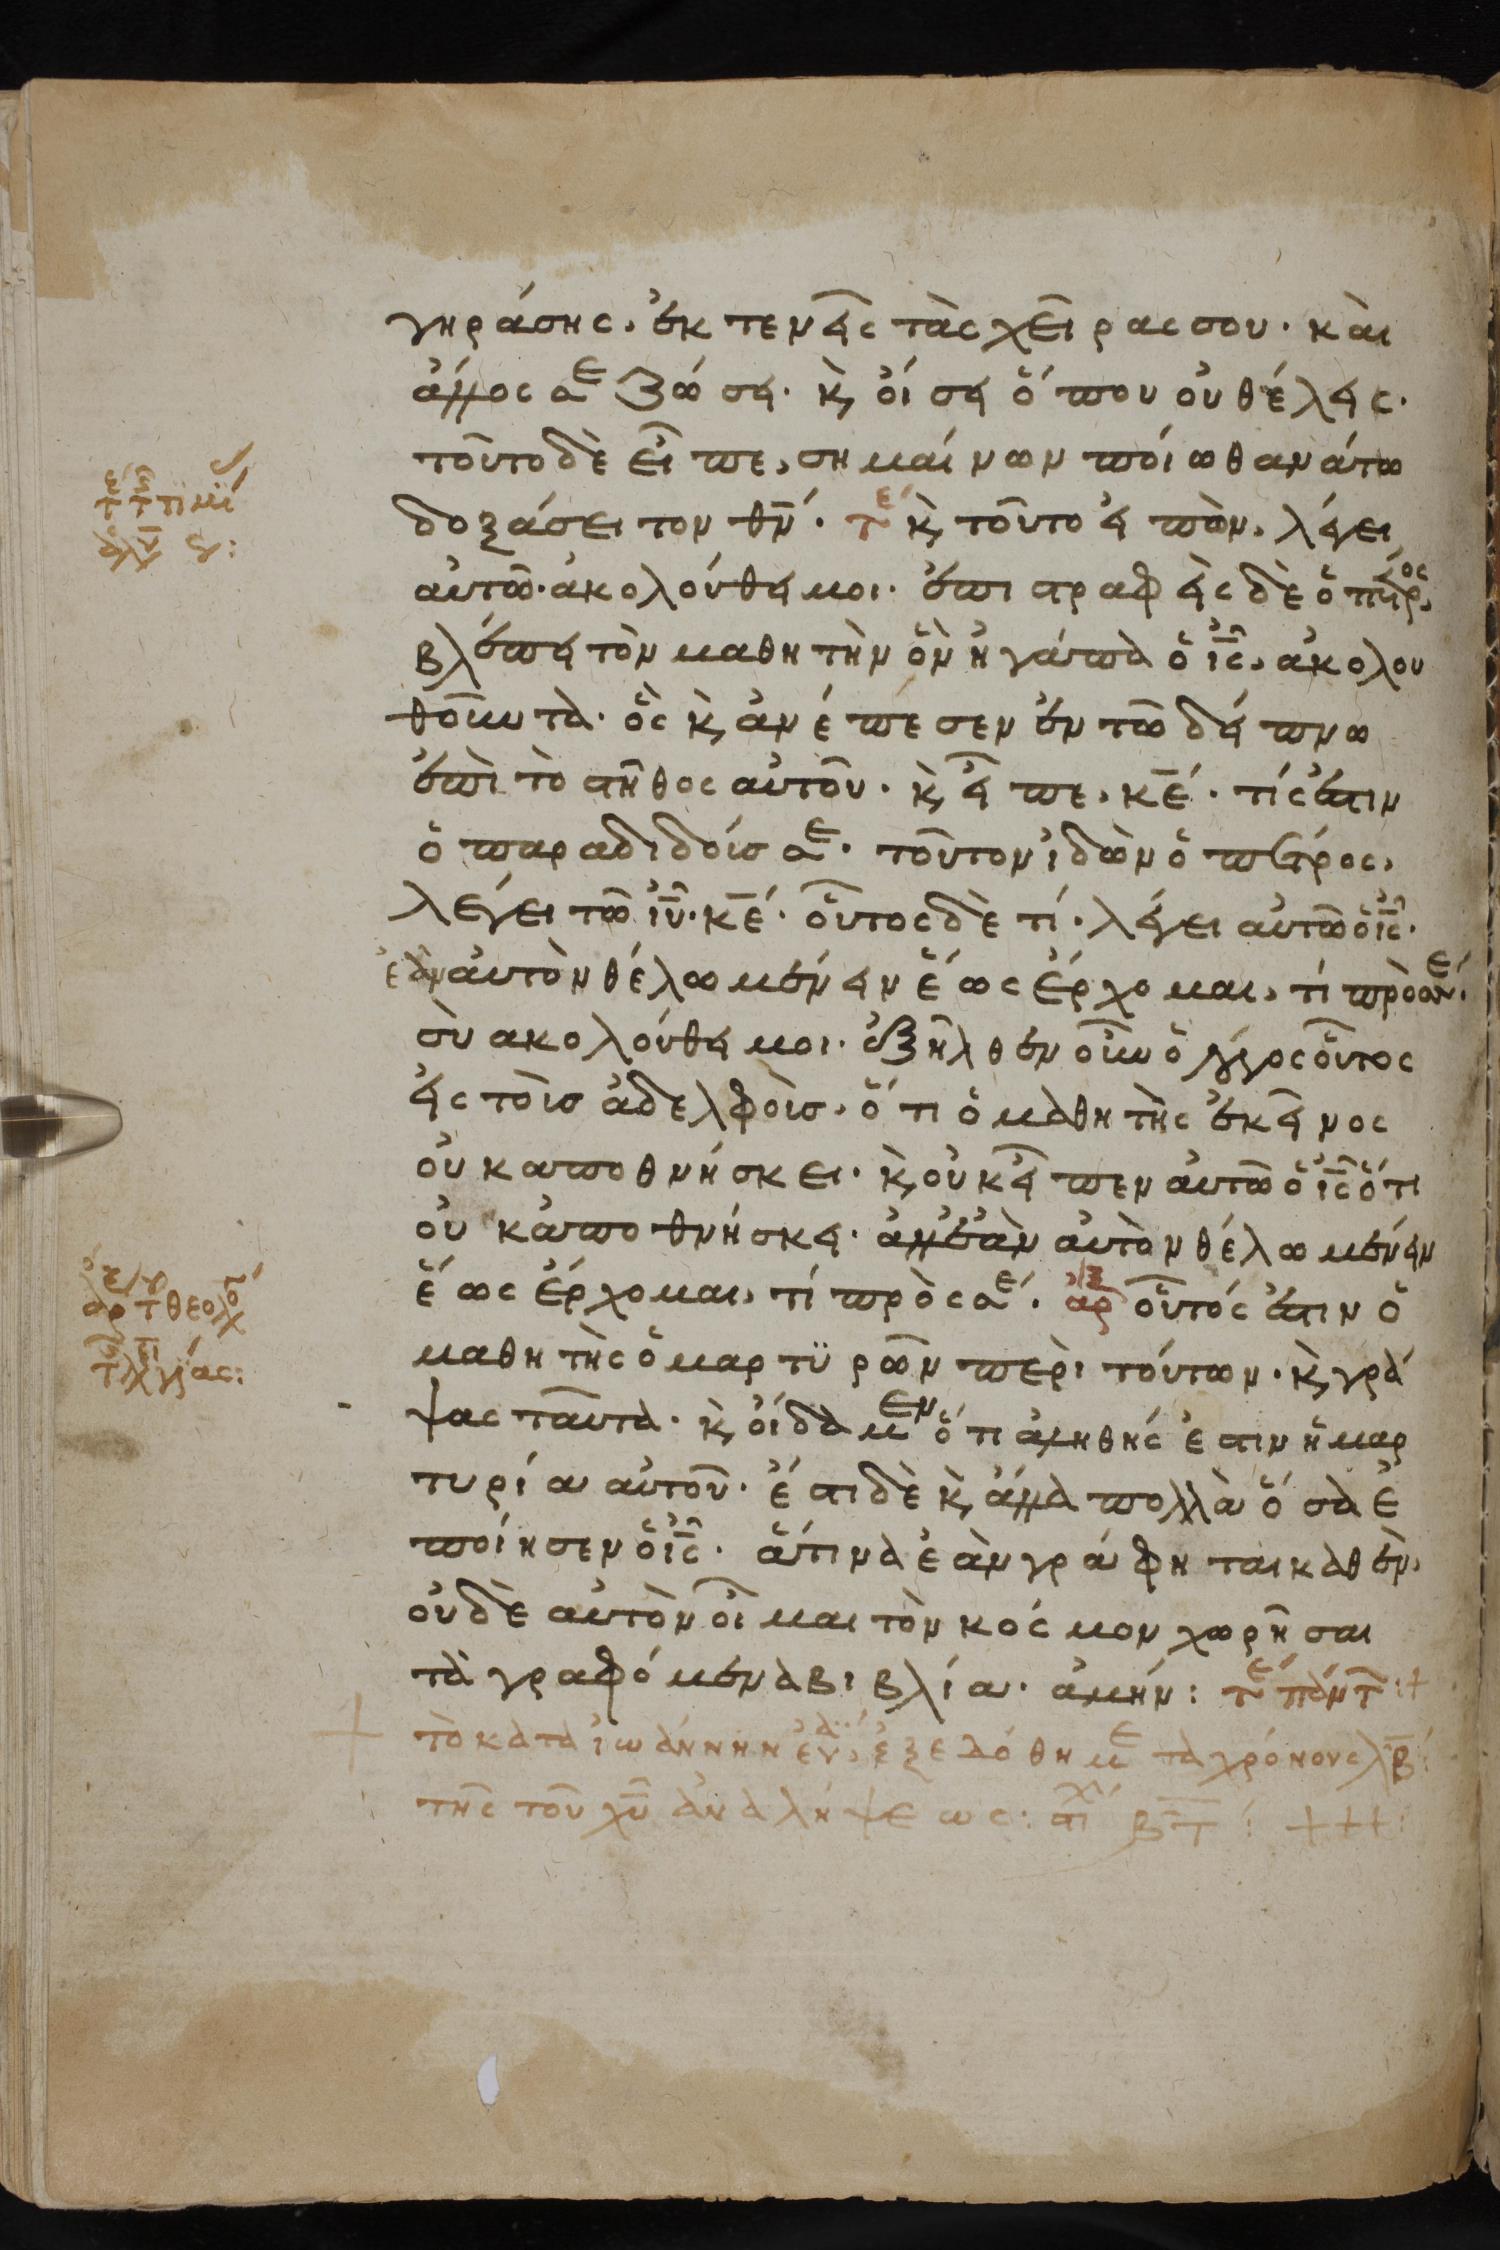 γηράσης, ἐκτενεῖς τὰς χεῖρας σου· καὶ
ἄλλος σε ζώσει· κ, οἴσει ὅπου οὐ θέλεις·
τοῦτο δὲ εἶπε, σημαίνων ποίω θανάτω
δοξάσει τον θν̄· τε κ, τοῦτο εἰπὼν, λέγει
αὐτῶ· ἀκολούθει μοι· ἐπιστραφεὶς δὲ ὁ πέτρος,
βλέπει τὸν μαθητὴν ὃν ἠγάπα ὁ ις̄, ἀκολου
θοῦντα· ὃς κ, ἀνέπεσεν ἐν τῶ δείπνω
ἐπὶ τὸ στῆθος αὐτοῦ· κ, εἶπε, κε̄· τίς ἐστιν
ὁ παραδιδούς σε· τοῦτον ἰδὼν ὁ πέτρος,
λέγει τῶ ιῡ· κε̄· οὗτος δὲ τί· λέγει αὐτῶ ὁ ις̄·
ἐὰν αὐτὸν θέλω μένειν ἕως ἔρχομαι, τί πρὸς σέ·
σὺ ακολούθει μοι· ἐξῆλθεν οὖν ὁ λόγος οὗτος
εἰς τοὺς ἀδελφοὺς, ὅτι ὁ μαθητὴς ἐκεῖνος
οὐκ αποθνήσκει· κ, οὐκ εἶπεν αὐτῶ ὁ ις̄ ὅτι
οὐκ ἀποθνήσκει· ἀλλ' ἐὰν αὐτὸν θέλω μένειν
ἕως ἔρχομαι, τί πρὸς σέ· ἀρχ οὗτός ἐστιν ὁ
μαθητὴς ὁ μαρτϋρῶν περὶ τούτων· κ, γρά
ψας ταῦτα· κ, οἴδαμεν ὅτι ἀληθής ἐστιν ἡ μαρ
τυρία αὐτοῦ· ἔστι δὲ κ, ἄλλα πολλὰ ὅσα ἐ
ποίησεν ὁ ις̄· ἅτινα ἐὰν γράφηται καθ' ἕν,
οὐδὲ αὐτὸν οἶμαι τὸν κόσμον χωρῆσαι
τὰ γραφόμενα βιβλία· ἀμήν: τε πάντ :+
+ τὸ κατὰ ἰωάννην εὐα, ἐξεδόθη με τα χρόνους λβ̄
τῆς τοῦ χῡ ἀναλήψεως: στι βτ̄ : +++: